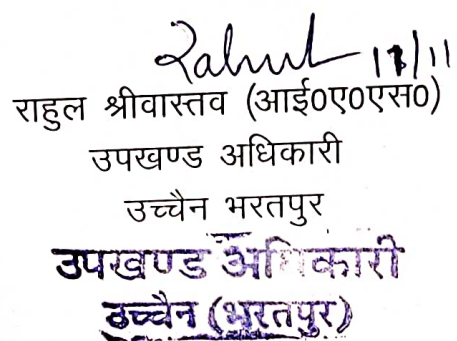 Rahul 17/11
राहुल श्रीवास्तव (आई०ए०एस०)
उपखण्ड अधिकारी
उच्चैन भरतपुर
उपखण्ड अधिकारी
उच्चैन (भरतपुर)